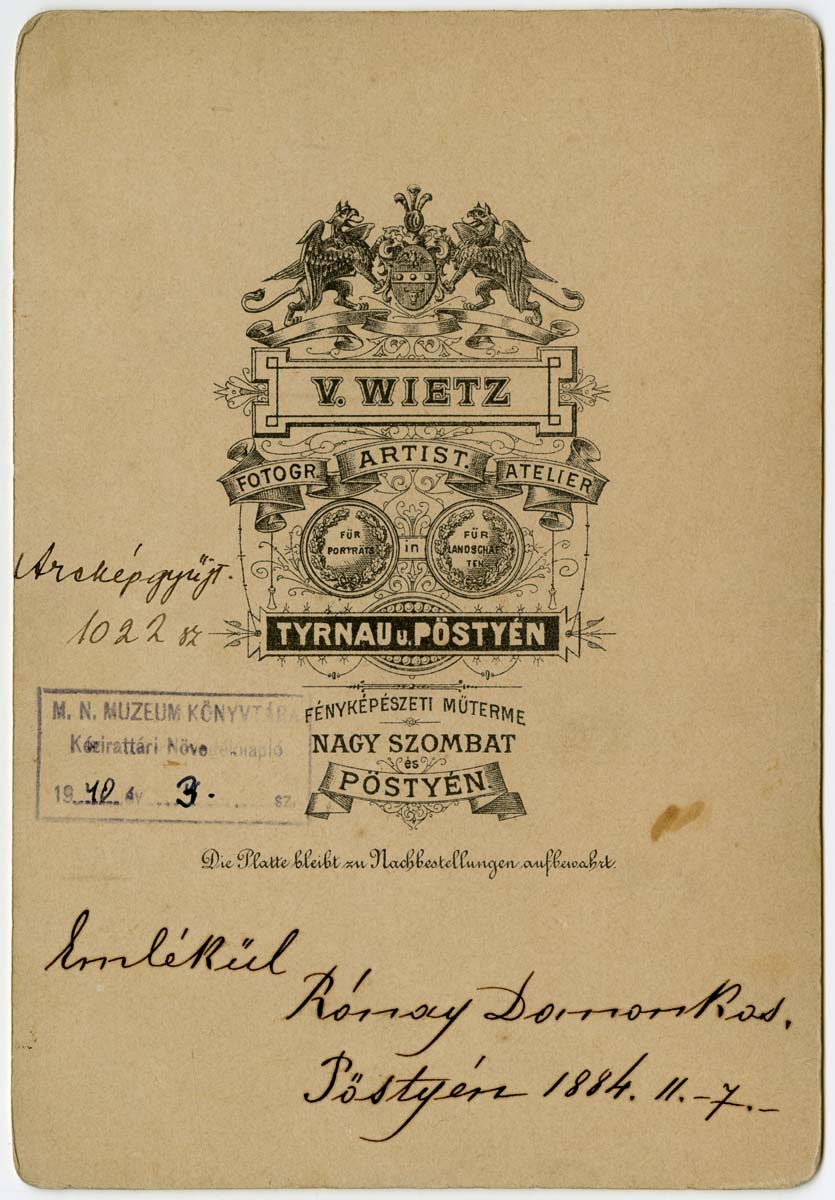 V. WIETZ
FOTOGR. ARTIST. ATELIER
FÜR PORTRÄTS in FÜR LANDSCHAFTEN
TYRNAU u. PÖSTYÉN
FÉNYKÉPÉSZETI MŰTERME
NAGY SZOMBAT
és
PÖSTYÉN.
Die Platte bleibt zu Nachbestellungen aufbewahrt.
Arcképgyűjt.
1022 sz
M. N. MUZEUM KÖNYVTÁRA
Kézirattári Növedéknapló
1940 év 3. sz.
Emlékül
Rónay Domonkos.
Pöstyén 1884. 11.-7.-